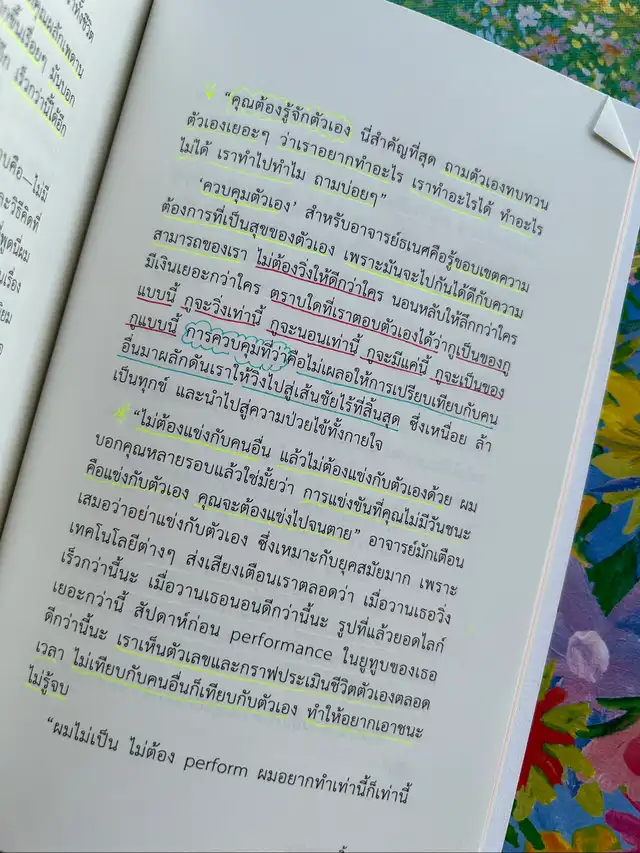 ำทั้งชีวิต
คุณจะสักเพดาน
ขึ้นเรื่อยๆ มันบอก
เร็วกว่านี้ได้อีก
บคือ—ไม่มี
ละวิธีคิดที่
ที่พูดนี่ผม
นเรื่อง
นิยม
“คุณต้องรู้จักตัวเอง นี่สำคัญที่สุด ถามตัวเองทบทวน
ตัวเองเยอะๆ ว่าเราอยากทำอะไร เราทำอะไรได้ ทำอะไร
ไม่ได้ เราทำไปทำไม ถามบ่อยๆ”
‘ควบคุมตัวเอง’ สำหรับอาจารย์ธเนศคือรู้ขอบเขตความ
ต้องการที่เป็นสุขของตัวเอง เพราะมันจะไปกันได้ดีกับความ
สามารถของเรา ไม่ต้องวิ่งให้ดีกว่าใคร นอนหลับให้ลึกกว่าใคร
มีเงินเยอะกว่าใคร ตราบใดที่เราตอบตัวเองได้ว่ากูเป็นของกู
แบบนี้ กูจะวิ่งเท่านี้ กูจะนอนเท่านี้ กูจะมีแค่นี้ กูจะเป็นของ
กูแบบนี้ การควบคุมที่ว่าคือไม่เผลอให้การเปรียบเทียบกับคน
อื่นมาผลักดันเราให้วิ่งไปสู่เส้นชัยไร้ที่สิ้นสุด ซึ่งเหนื่อย ล้า
เป็นทุกข์ และนำไปสู่ความป่วยไข้ทั้งกายใจ
“ไม่ต้องแข่งกับคนอื่น แล้วไม่ต้องแข่งกับตัวเองด้วย ผม
บอกคุณหลายรอบแล้วใช่มั้ยว่า การแข่งขันที่คุณไม่มีวันชนะ
คือแข่งกับตัวเอง คุณจะต้องแข่งไปจนตาย” อาจารย์มักเตือน
เสมอว่าอย่าแข่งกับตัวเอง ซึ่งเหมาะกับยุคสมัยมาก เพราะ
เทคโนโลยีต่างๆ ส่งเสียงเตือนเราตลอดว่า เมื่อวานเธอวิ่ง
เร็วกว่านี้นะ เมื่อวานเธอนอนดีกว่านี้นะ รูปที่แล้วยอดไลก์
เยอะกว่านี้ สัปดาห์ก่อน performance ในยูทูบของเธอ
ดีกว่านี้นะ เราเห็นตัวเลขและกราฟประเมินชีวิตตัวเองตลอด
เวลา ไม่เทียบกับคนอื่นก็เทียบกับตัวเอง ทำให้อยากเอาชนะ
ไม่รู้จบ
“ผมไม่เป็น ไม่ต้อง perform ผมอยากทำเท่านี้ก็เท่านี้